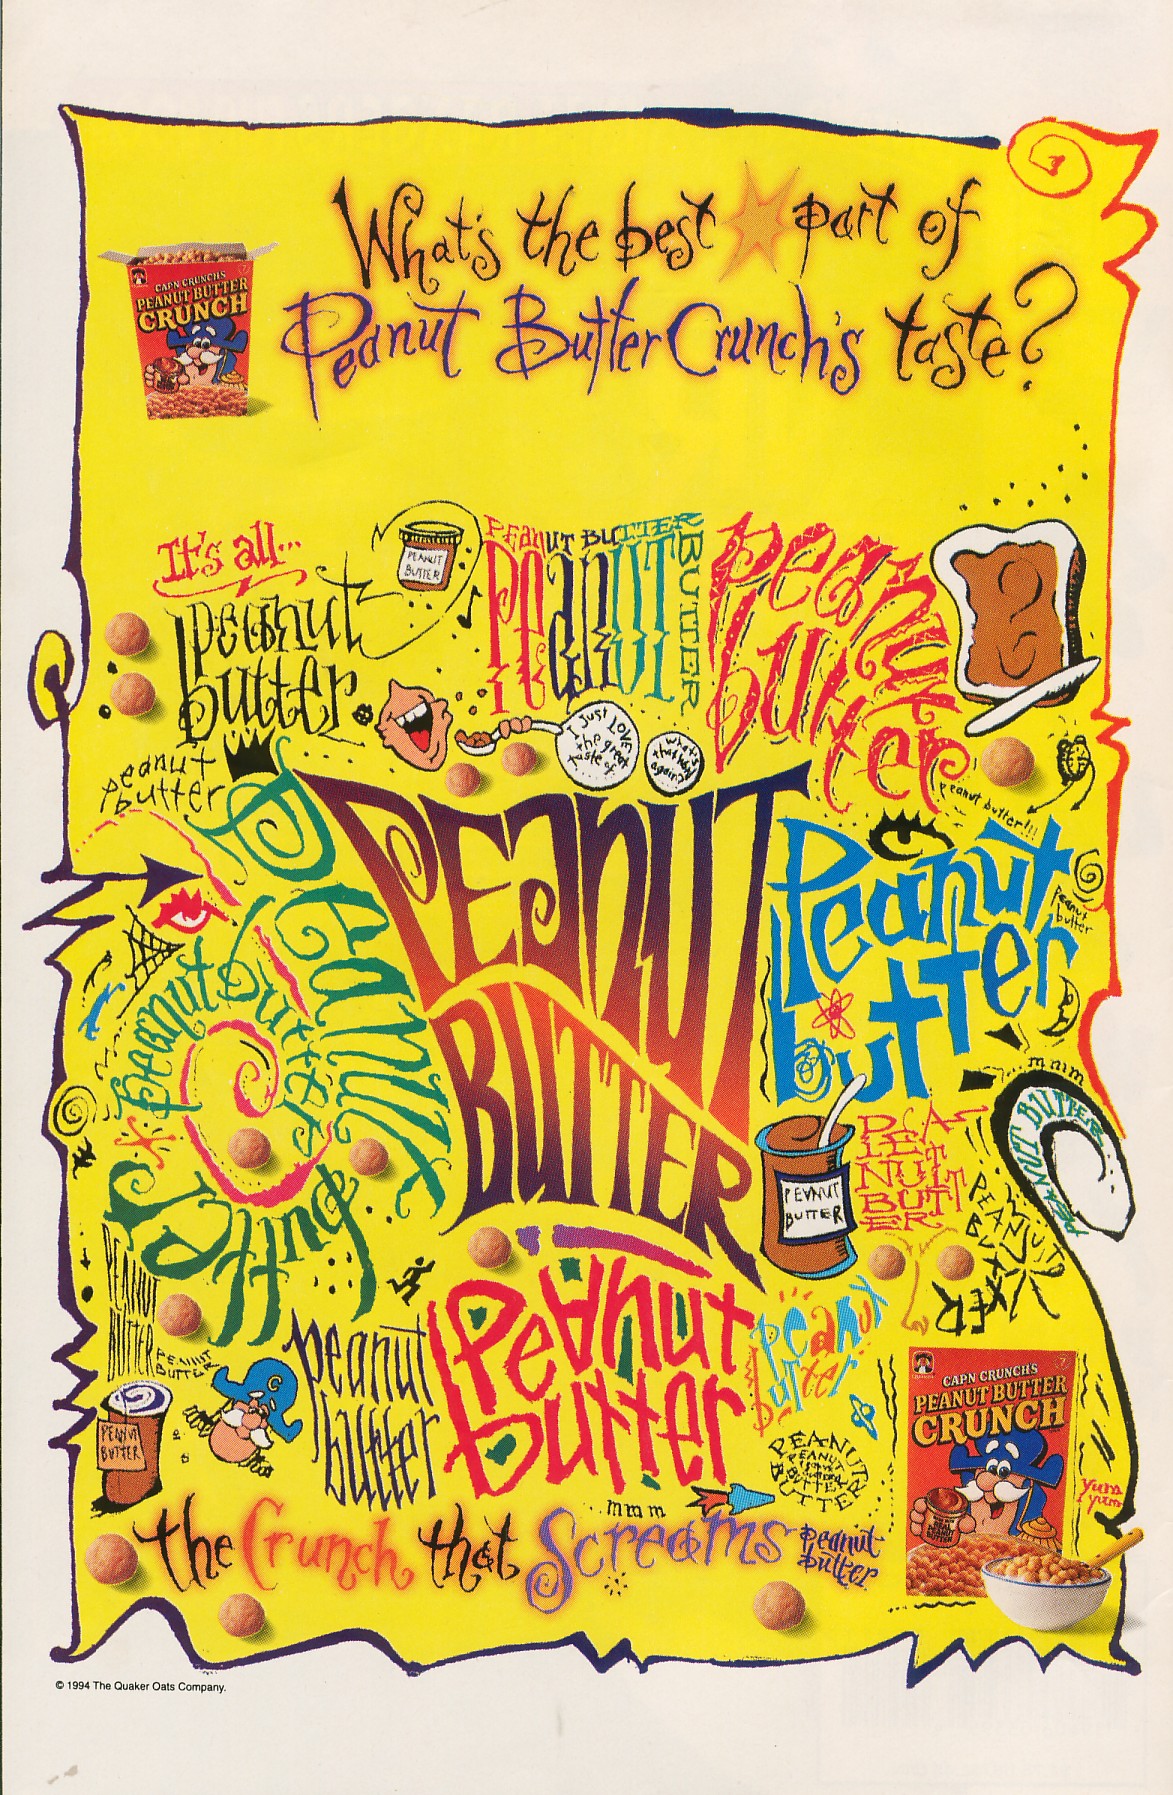 What's the best part of
Peanut Butter Crunch's taste?
CAPN CRUNCH'S
PEANUT BUTTER
CRUNCH
It's all...
peanut
butter
PEANUT
BUTTER
PEANUT BUTTER
PEANUT
BUTTER
peanut
butter
I just LOVE
the great
taste of...
what's
that word
again?
peanut
butter
peanut butter!!!
PEANUT
BUTTER
Peanut
butter
peanut
butter
Peanut
butter
peanut butter
mmm
PEANUT BUTTER
PEANUT
BUTTER
PEA-
NUT
BUTT
ER
PEANUT
BUTTER
PEANUT
BUTTER
PEANUT
BUTTER
PEANUT
BUTTER
C
peanut
butter
Peanut
butter
peanut
butter
PEANUT
BUTTER
CAPN CRUNCH'S
PEANUT BUTTER
CRUNCH
yum
yum
...mmm
the Crunch that Screams peanut
butter
© 1994 The Quaker Oats Company.